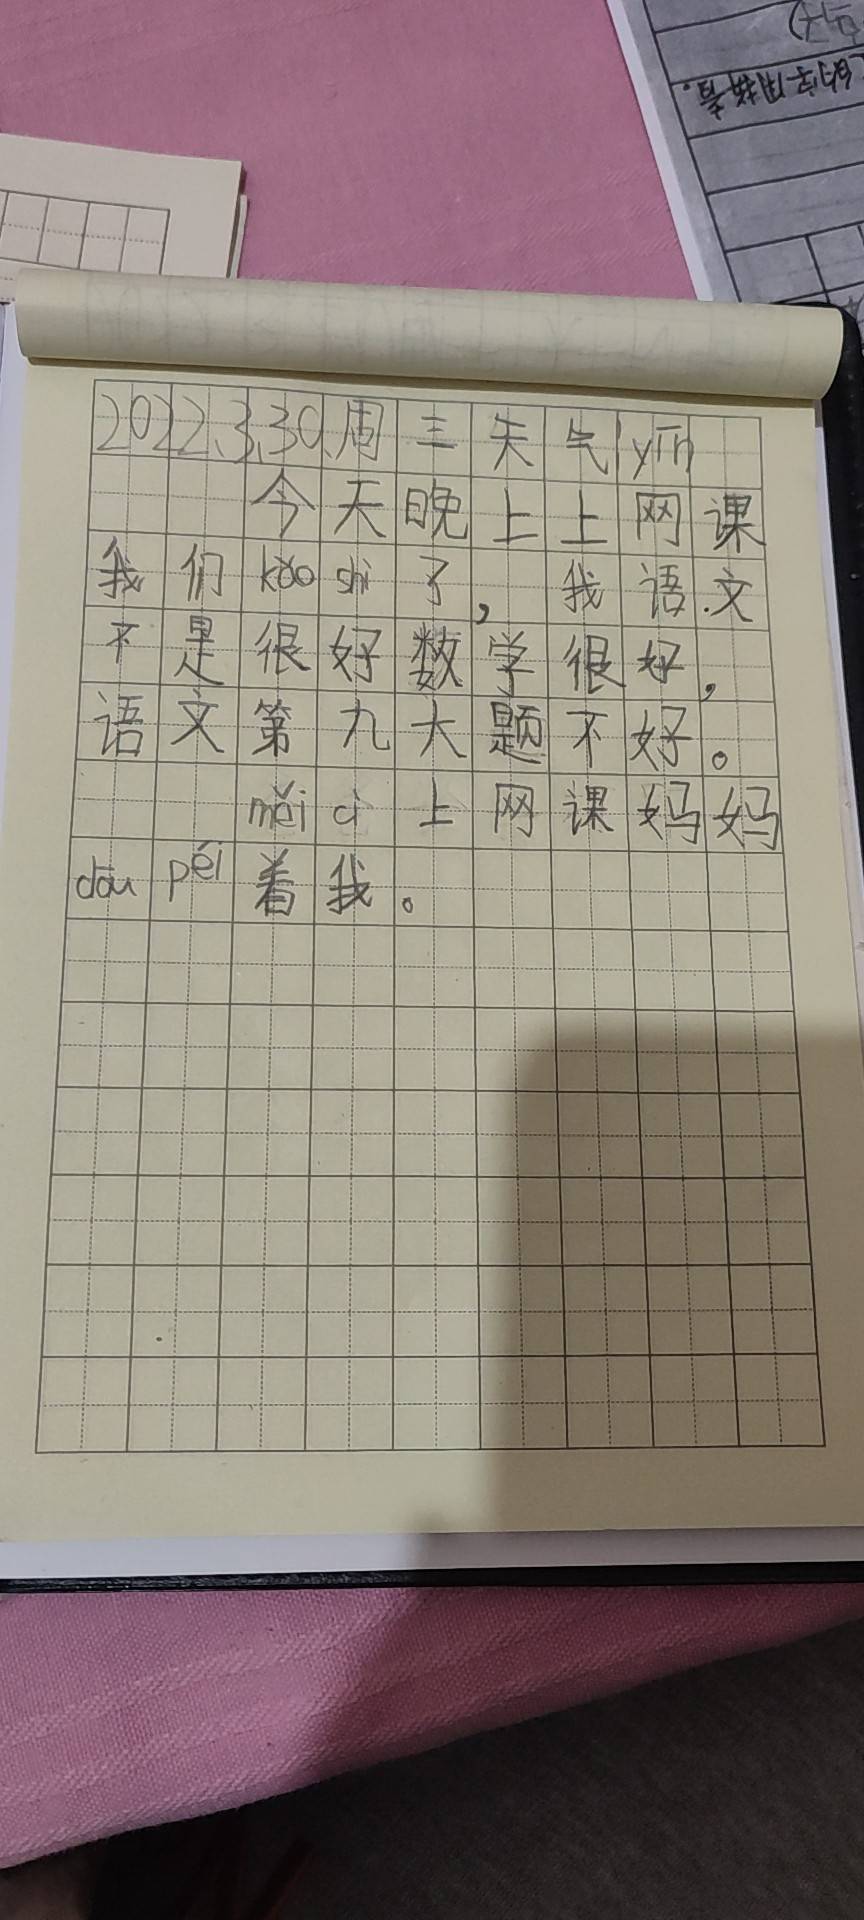 的字用拼音。
2022.3.30.周三天气yīn
今天晚上上网课
我们kǎo shì了，我语文
不是很好数学很好，
语文第九大题不好。
měi cì上网课妈妈
dōu péi着我。